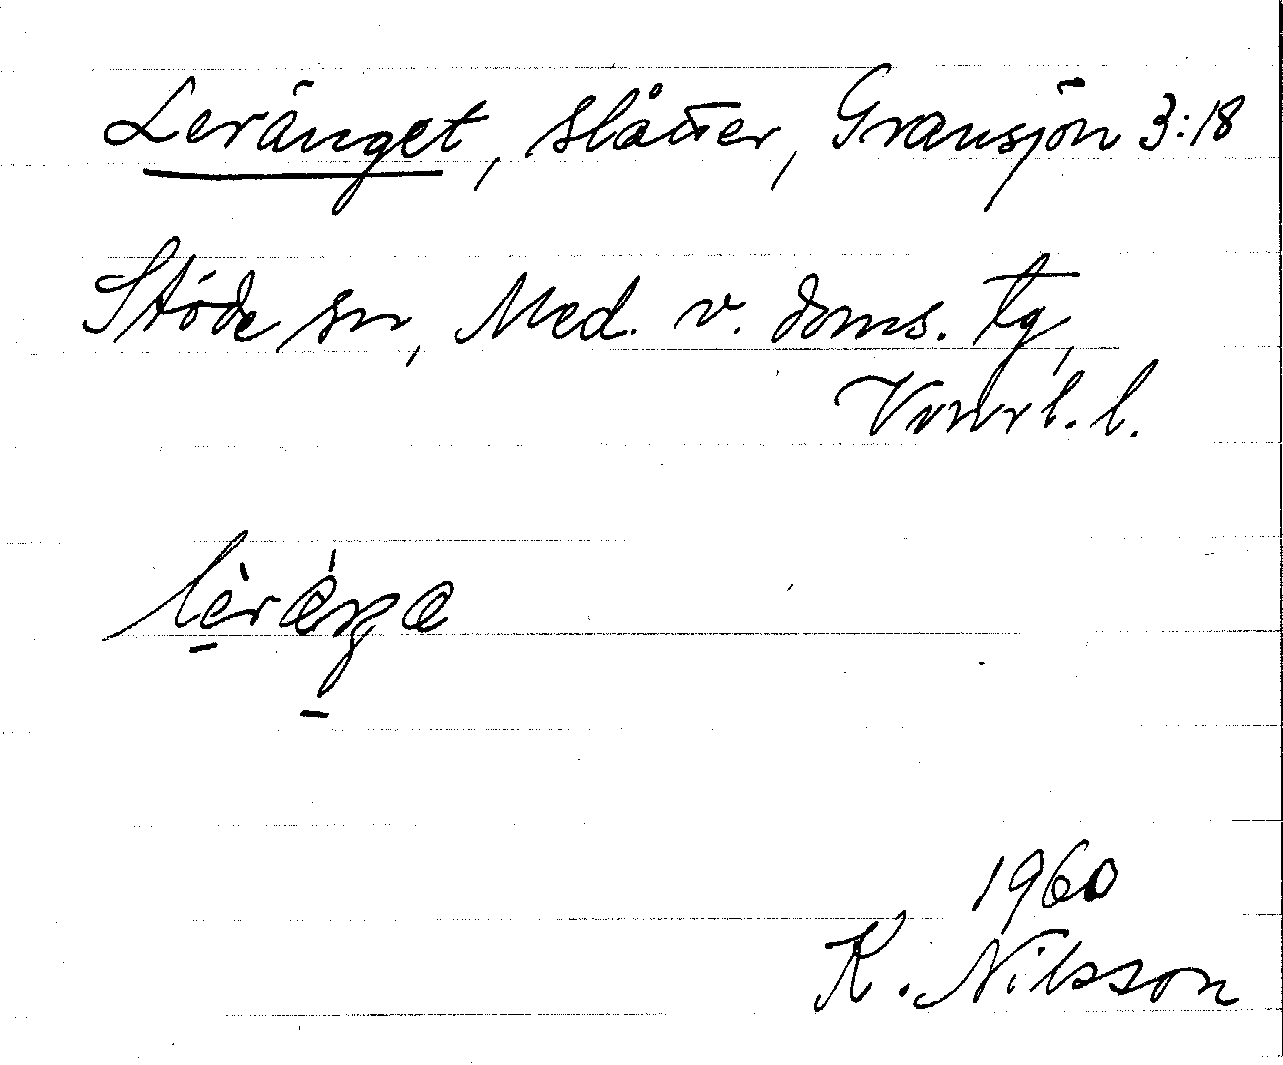 Leränget, slåtter, Gransjön 3:18
Stöde sn, Med. v. doms. tg,
Vnorl. l.
1960
K. Nilsson